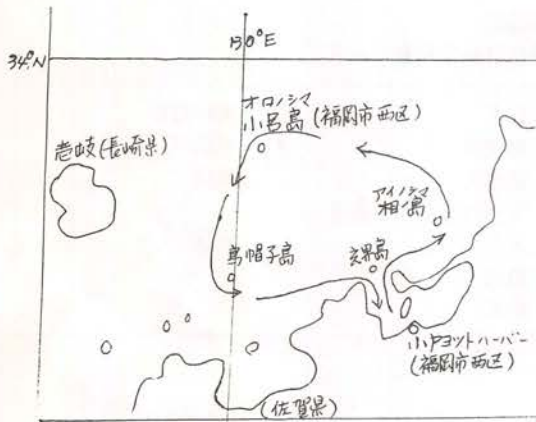 130°E
34°N
オロノシマ
小呂島(福岡市西区)
壱岐(長崎県)
アイノシマ
相ノ島
烏帽子島
玄界島
小戸ヨットハーバー
(福岡市西区)
(佐賀県)